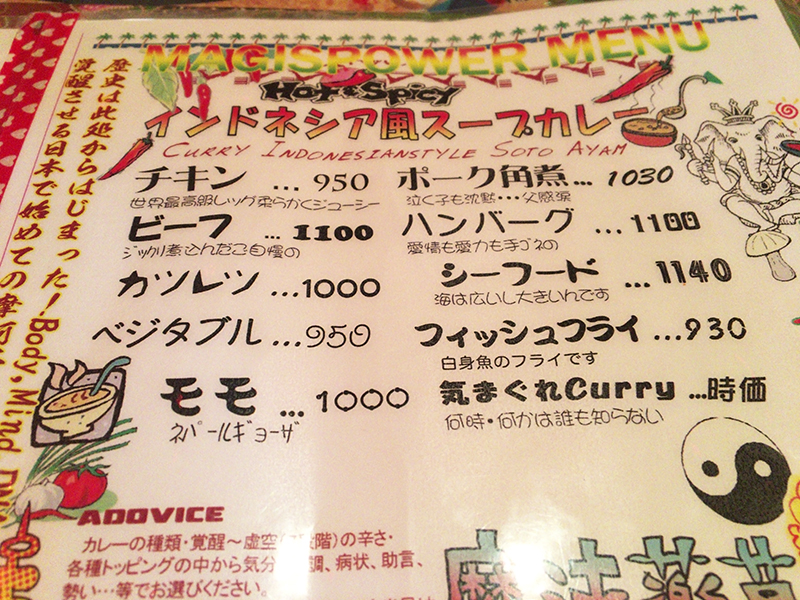 MAGISPOWER MENU
Hot & Spicy
インドネシア風スープカレー
CURRY INDONESIANSTYLE SOTO AYAM
チキン …950
世界最高級レッグ柔らかくジューシー
ビーフ …1100
ジックリ煮込んだご自慢の
カツレツ …1000
ベジタブル …950
モモ …1000
ネパールギョーザ
ポーク角煮…1030
泣く子も沈黙・・・父感涙
ハンバーグ …1100
愛情も愛力も手ゴネの
シーフード …1140
海は広いし大きいんです
フィッシュフライ …930
白身魚のフライです
気まぐれCurry …時価
何時・何かは誰も知らない
歴史は此処からはじまった！Body, Mind
覚醒させる日本で始めての摩
ADOVICE
カレーの種類・覚醒～虚空(階)の辛さ・
各種トッピングの中から気分、調、病状、助言、
勢い…等でお選びください。
魔法薬